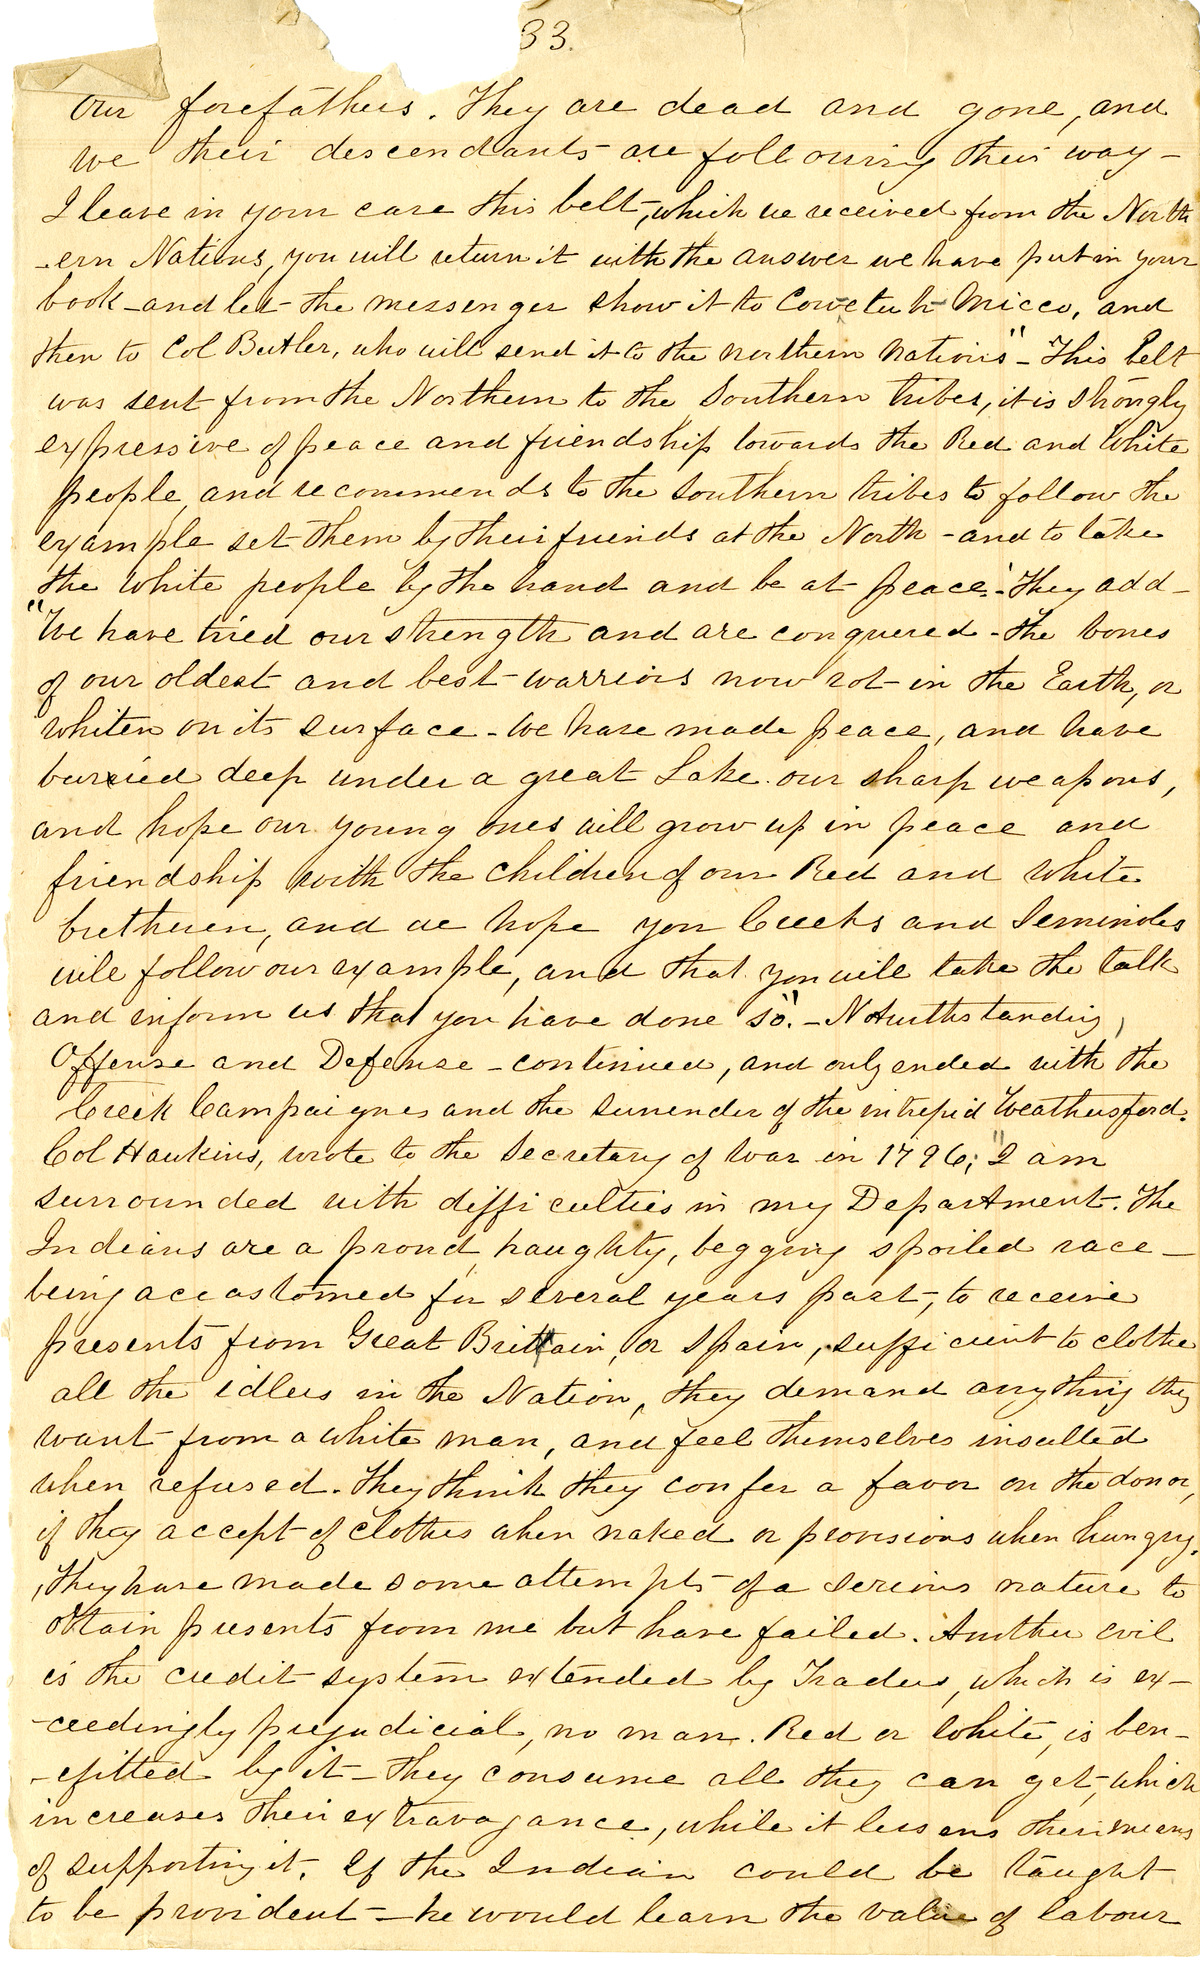 33.
our forefathers. They are dead and gone, and
we their descendants are following their way -
I leave in your care this belt, which we received from the North
-ern Nations, you will return it with the answer we have put in your
book - and let the messenger show it to Cowetuh Micco, and
then to Col Butler, who will send it to the northern nations" - This belt
was sent from the Northern to the Southern tribes, it is strongly
expressive of peace and friendship towards the Red and White
people, and recommends to the Southern tribes to follow the
example set them by their friends at the North - and to take
the white people by the hand and be at peace". They add -
"We have tried our strength and are conquered - the bones
of our oldest and best warriors now rot in the Earth, or
whiten on its surface - We have made peace, and have
buried deep under a great Lake our sharp weapons,
and hope our young ones will grow up in peace and
friendship with the children of our Red and White
brethren, and we hope you Creeks and Seminoles
will follow our example, and that you will take the talk
and inform us that you have done so". - Notwithstanding,
Offense and Defense - continued, and only ended with the
Creek Campaignes and the surrender of the intrepid Weathersford.
Col Hawkins, wrote to the Secretary of War in 1796; "I am
surrounded with difficulties in my Department. The
Indians are a proud, haughty, begging spoiled race -
being accastomed for several years past, to receive
presents from Great Brittain, or Spain, sufficient to clothe
all the idlers in the Nation, they demand anything they
want from a white man, and feel themselves insulted
when refused. They think they confer a favor on the donor,
if they accept of clothes when naked or provisions when hungry.
They have made some attempts of a serious nature to
obtain presents from me but have failed. Another evil
is the credit system extended by Traders, which is ex-
-ceedingly prejudicial, no man. Red or White, is ben-
-efitted by it - They consume all they can get, which
increases their extravagance, while it lessens their means
of supporting it. If the Indian could be taught
to be provident - he would learn the value of labour